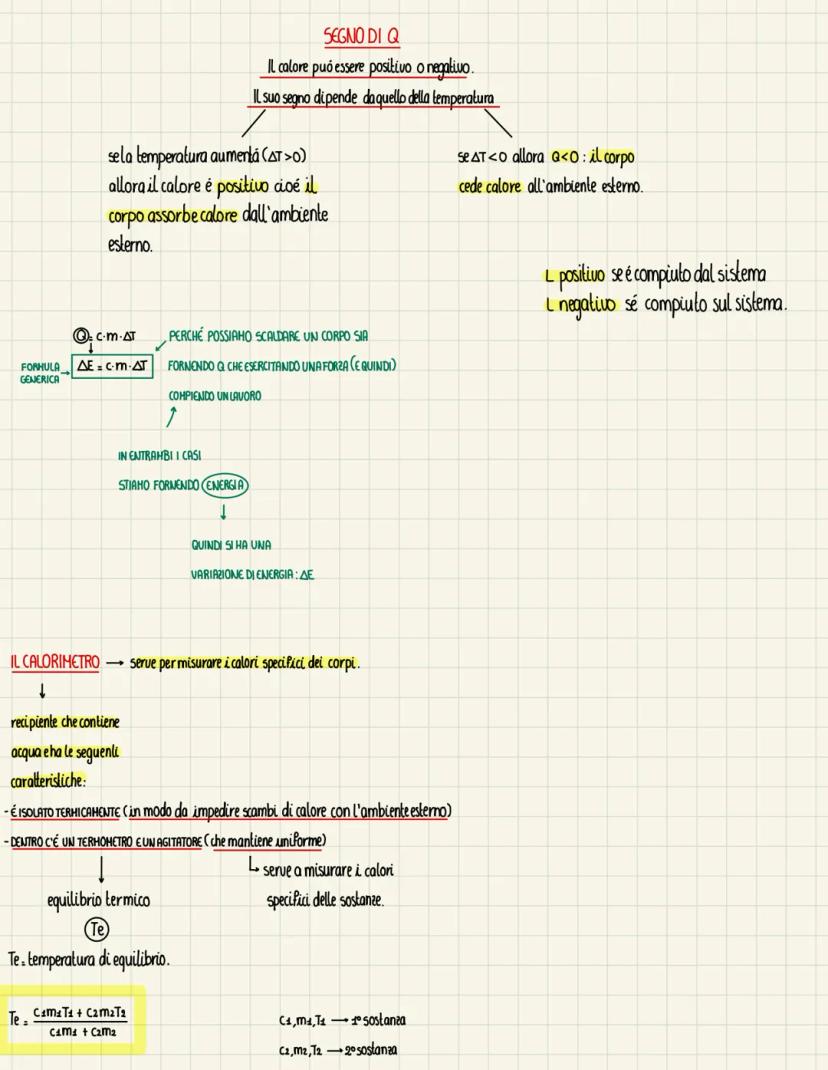 SEGNO DI Q
Il calore puó essere positivo o negativo.
Il suo segno dipende da quello della temperatura
se la temperatura aumentá (ΔT>0)
allora il calore é positivo cioé il
corpo assorbe calore dall'ambiente
esterno.
se ΔT<0 allora Q<0 : il corpo
cede calore all'ambiente esterno.
L positivo se é compiuto dal sistema
L negativo sé compiuto sul sistema.
Q = c·m·ΔT
FORMULA GENERICA → ΔE = c·m·ΔT
PERCHÉ POSSIAMO SCALDARE UN CORPO SIA
FORNENDO Q CHE ESERCITANDO UNA FORZA (E QUINDI)
COMPIENDO UN LAVORO
IN ENTRAMBI I CASI
STIAMO FORNENDO ENERGIA
QUINDI SI HA UNA
VARIAZIONE DI ENERGIA : ΔE
IL CALORIMETRO → serve per misurare i calori specifici dei corpi.
recipiente che contiene
acqua e ha le seguenti
caratteristiche:
- É ISOLATO TERMICAMENTE (in modo da impedire scambi di calore con l'ambiente esterno)
- DENTRO C'É UN TERMOMETRO E UN AGITATORE (che mantiene uniforme)
serve a misurare i calori
specifici delle sostanze.
equilibrio termico
Te
Te = temperatura di equilibrio.
Te = (C1m1T1 + C2m2T2) / (C1m1 + C2m2)
C1,m1,T1 → 1° sostanza
C2,m2,T2 → 2° sostanza